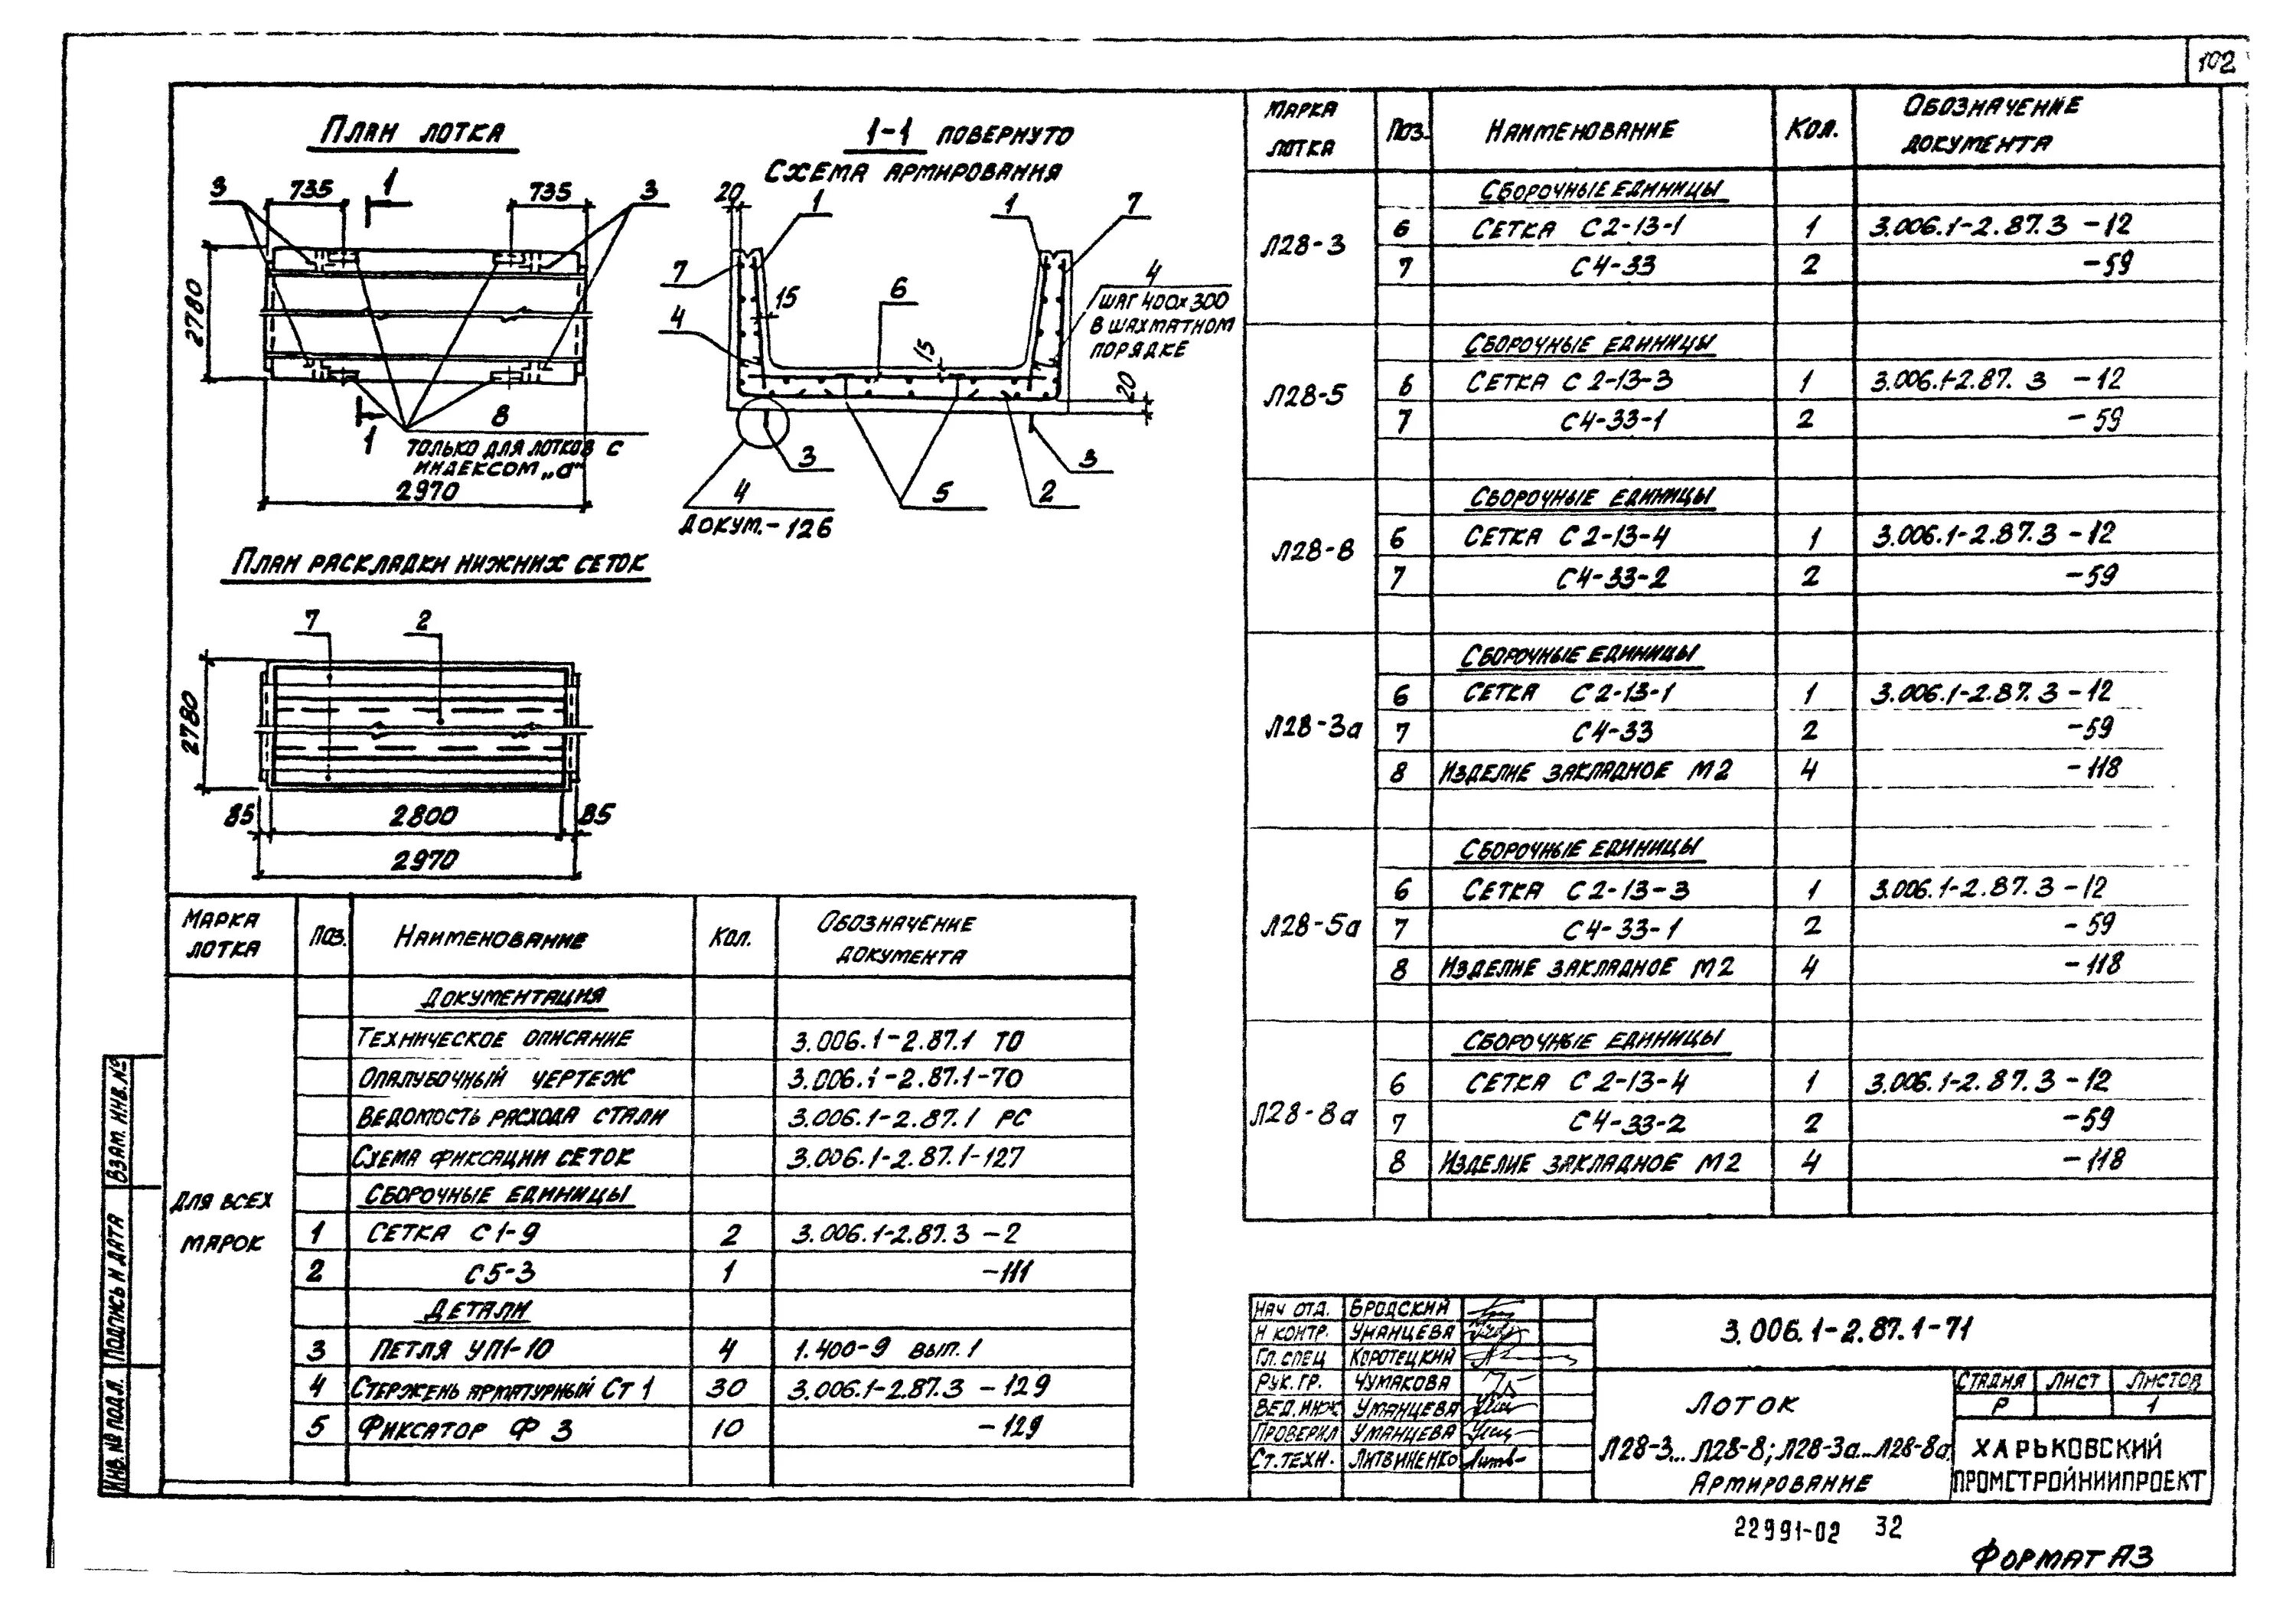 102
План лотка
3
735
1
735
3
2780
8
только для лотков с
индексом „а"
1
2970
1-1 повернуто
Схема армирования
20
1
1
7
7
15
6
4
шаг 400х300
в шахматном
порядке
4
15
20
3
3
4
5
2
Докум.-126
План раскладки нижних сеток
7
2
2780
85
2800
85
2970
Марка лотка | Поз. | Наименование | Кол. | Обозначение документа
Для всех марок
Документация
Техническое описание | 3.006.1-2.87.1 ТО
Опалубочный чертеж | 3.006.1-2.87.1-70
Ведомость расхода стали | 3.006.1-2.87.1 РС
Схема фиксации сеток | 3.006.1-2.87.1-127
Сборочные единицы
1 | Сетка С1-9 | 2 | 3.006.1-2.87.3 -2
2 | С5-3 | 1 | -111
Детали
3 | Петля УП1-10 | 4 | 1.400-9 вып.1
4 | Стержень арматурный Ст 1 | 30 | 3.006.1-2.87.3 -129
5 | Фиксатор Ф 3 | 10 | -129
Марка лотка | Поз. | Наименование | Кол. | Обозначение документа
Л28-3
Сборочные единицы
6 | Сетка С2-13-1 | 1 | 3.006.1-2.87.3 -12
7 | С4-33 | 2 | -59
Л28-5
Сборочные единицы
6 | Сетка С2-13-3 | 1 | 3.006.1-2.87.3 -12
7 | С4-33-1 | 2 | -59
Л28-8
Сборочные единицы
6 | Сетка С2-13-4 | 1 | 3.006.1-2.87.3 -12
7 | С4-33-2 | 2 | -59
Л28-3а
Сборочные единицы
6 | Сетка С2-13-1 | 1 | 3.006.1-2.87.3 -12
7 | С4-33 | 2 | -59
8 | Изделие закладное М2 | 4 | -118
Л28-5а
Сборочные единицы
6 | Сетка С2-13-3 | 1 | 3.006.1-2.87.3 -12
7 | С4-33-1 | 2 | -59
8 | Изделие закладное М2 | 4 | -118
Л28-8а
Сборочные единицы
6 | Сетка С2-13-4 | 1 | 3.006.1-2.87.3 -12
7 | С4-33-2 | 2 | -59
8 | Изделие закладное М2 | 4 | -118
Инв. № подл.
Подпись и дата
Взам. инв. №
Нач отд. Бродский
Н контр. Уманцева
Гл. спец Коротецкий
Рук. гр. Чумакова
Вед. инж Уманцева
Проверил Уманцева
Ст. техн. Литвиненко
3.006.1-2.87.1-71
Лоток
Л28-3... Л28-8; Л28-3а...Л28-8а
Армирование
Стадия | Лист | Листов
Р | 1
Харьковский
Промстройниипроект
22991-02 32
Формат А3